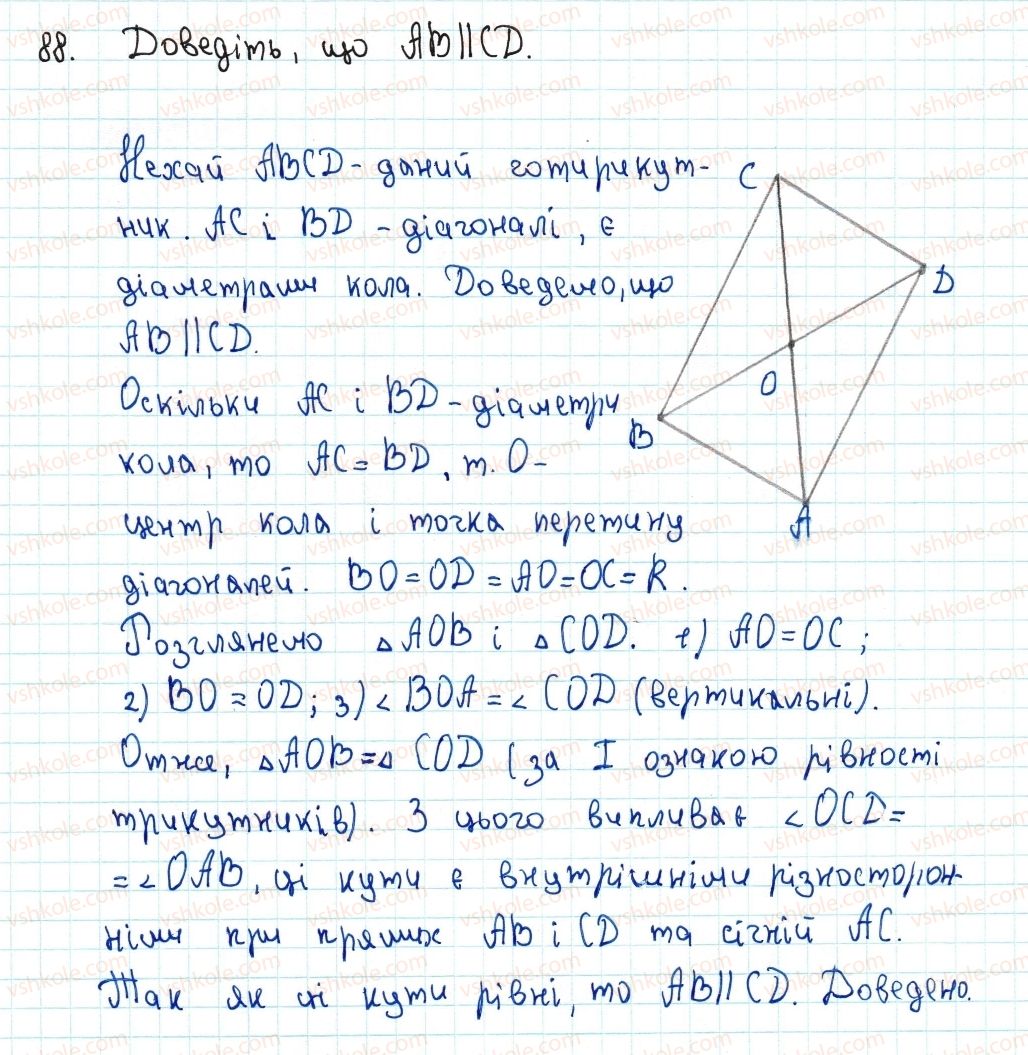 88. Доведіть, що AB||CD.
Нехай ABCD - даний чотирикут-
ник. AC і BD - діагоналі, є
діаметрами кола. Доведемо, що
AB||CD.
Оскільки AC і BD - діаметри
кола, то AC = BD, т. O -
центр кола і точка перетину
діагоналей. BO = OD = AO = OC = R.
Розглянемо △AOB і △COD. 1) AO = OC;
2) BO = OD; 3) ∠BOA = ∠COD (вертикальні).
Отже, △AOB = △COD (за I ознакою рівності
трикутників). З цього випливає ∠OCD =
= ∠OAB, ці кути є внутрішніми різносторон-
німи при прямих AB і CD та січній AC.
Так як ці кути рівні, то AB||CD. Доведено.
C
D
O
B
A
vshkole.com